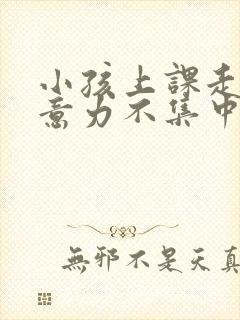 小孩上課走
意力不集中
無邪不是天真